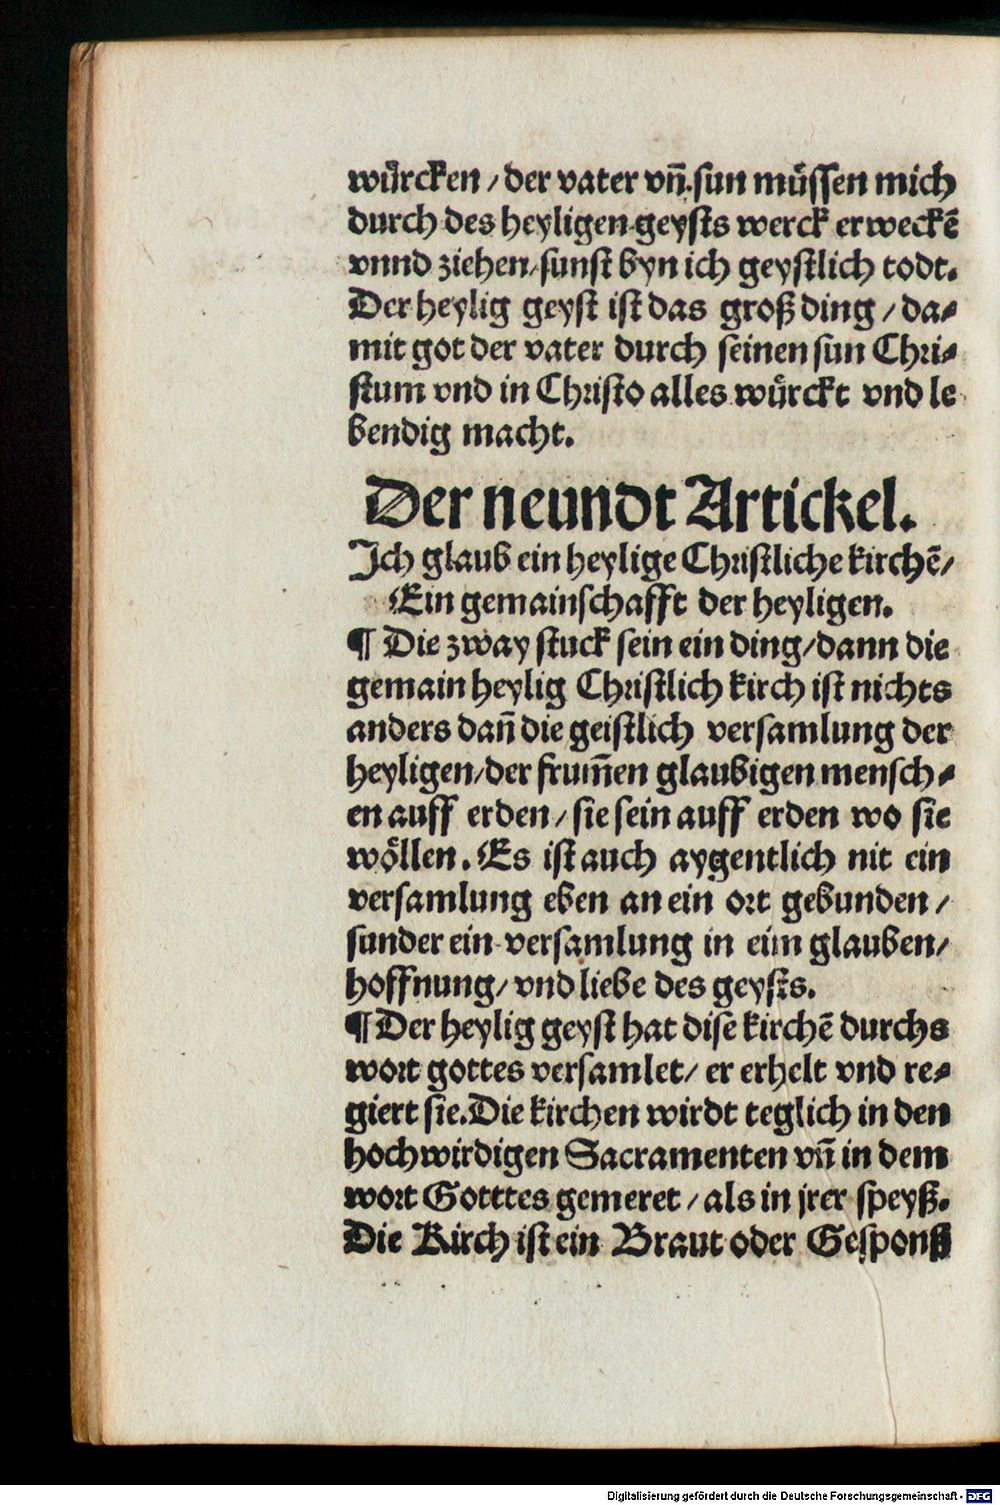 wuͤrcken / der vater vñ sun muͤssen mich
durch des heyligen geysts werck erweckẽ
vnnd ziehen / sunst byn ich geystlich todt.
Der heylig geyst ist das groß ding / da⸗
mit got der vater durch seinen sun Chri⸗
stum vnd in Christo alles wuͤrckt vnd le
bendig macht.
Der neundt Artickel.
Ich glaub ein heylige Christliche kirchẽ /
Ein gemainschafft der heyligen.
¶ Die zway stuck sein ein ding / dann die
gemain heylig Christlich kirch ist nichts
anders dañ die geistlich versamlung der
heyligen / der frum̃en glaubigen mensch⸗
en auff erden / sie sein auff erden wo sie
woͤllen. Es ist auch aygentlich nit ein
versamlung eben an ein ort gebunden /
sunder ein versamlung in eim glauben /
hoffnung / vnd liebe des geysts.
¶ Der heylig geyst hat dise kirchẽ durchs
wort gottes versamlet / er erhelt vnd re⸗
giert sie. Die kirchen wirdt teglich in den
hochwirdigen Sacramenten vñ in dem
wort Gotttes gemeret / als in jrer speyß.
Die Kirch ist ein Braut oder Gesponß
Digitalisierung gefördert durch die Deutsche Forschungsgemeinschaft - DFG